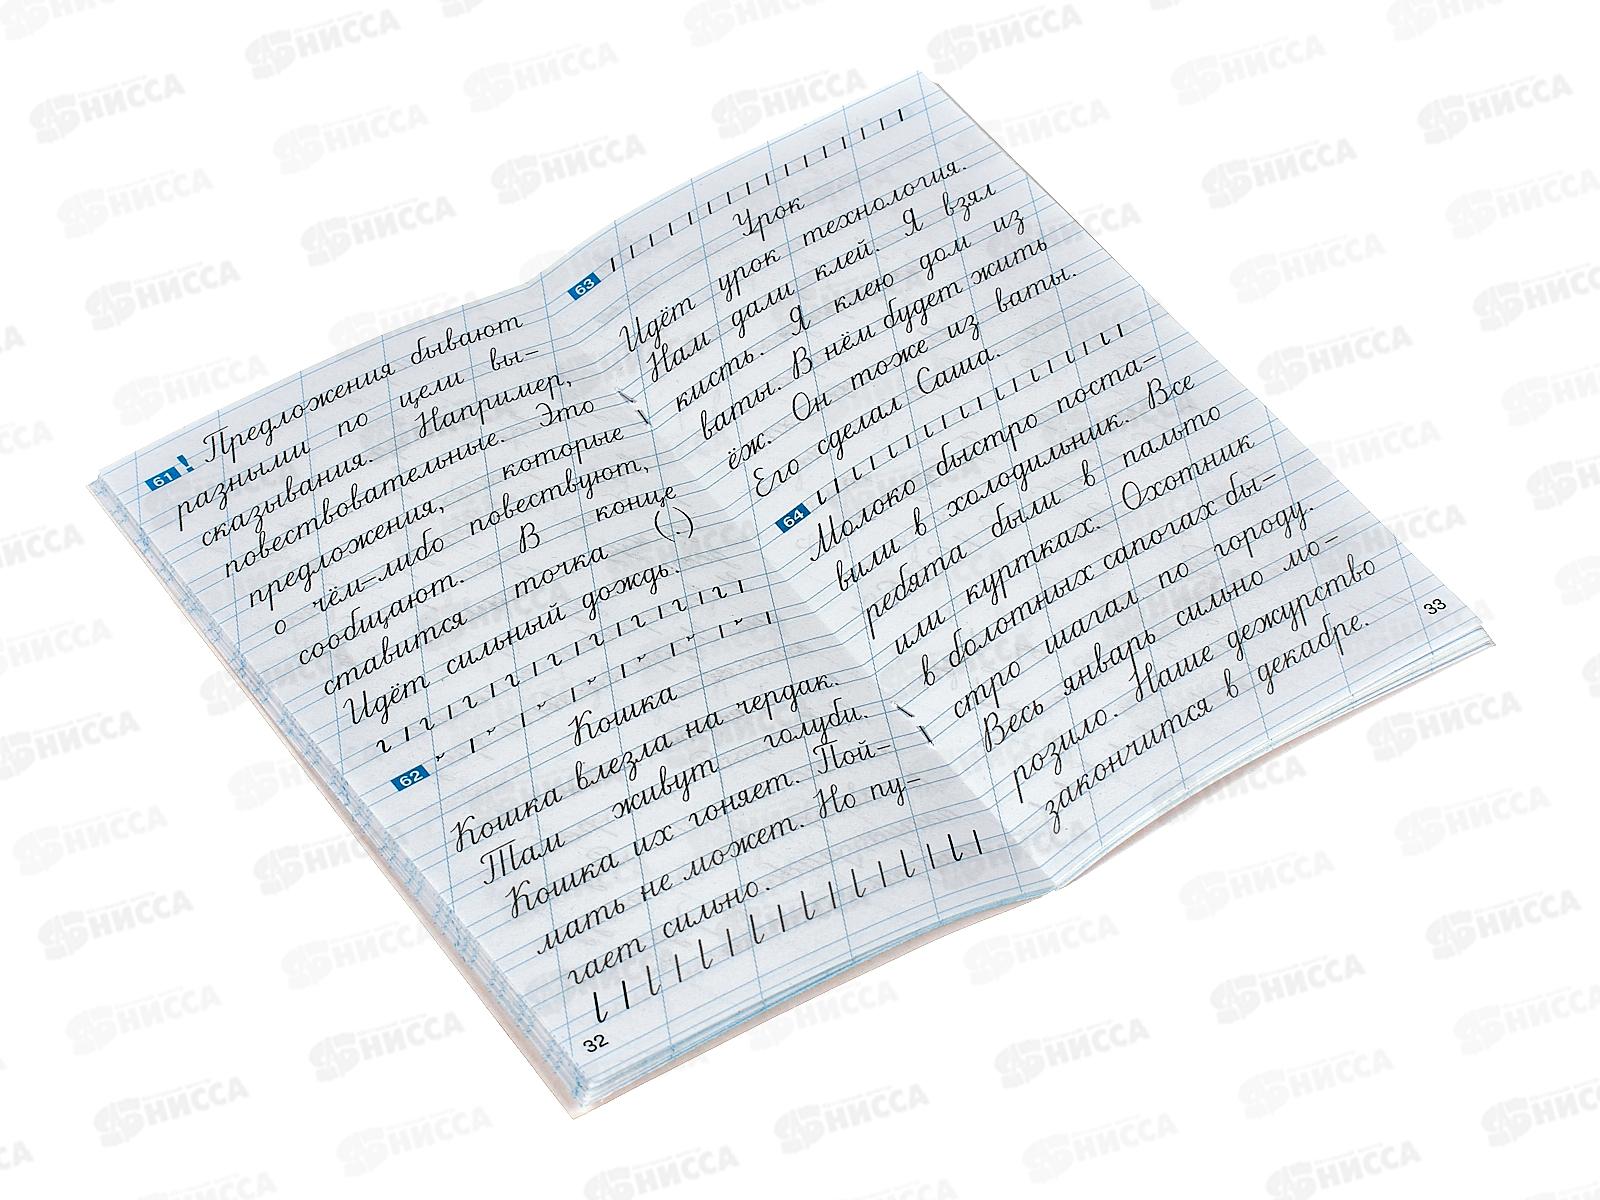 61 ! Предложения бывают
разными по цели вы-
сказывания. Например,
повествовательные. Это
предложения, которые
о чём-либо повествуют,
сообщают. В конце
ставится точка (.)
Идёт сильный дождь.
62
Кошка
Кошка влезла на чердак.
Там живут голуби.
Кошка их гоняет. Пой-
мать не может. Но пу-
гает сильно.
32
63
Урок
Идёт урок технология.
Нам дали клей. Я взял
кисть. Я клею дом из
ваты. В нём будет жить
ёж. Он тоже из ваты.
Его сделал Саша.
64
Молоко быстро поста-
вили в холодильник. Все
ребята были в пальто
или куртках. Охотник
в болотных сапогах бы-
стро шагал по городу.
Весь январь сильно мо-
розило. Наше дежурство
закончится в декабре.
33
НИССА